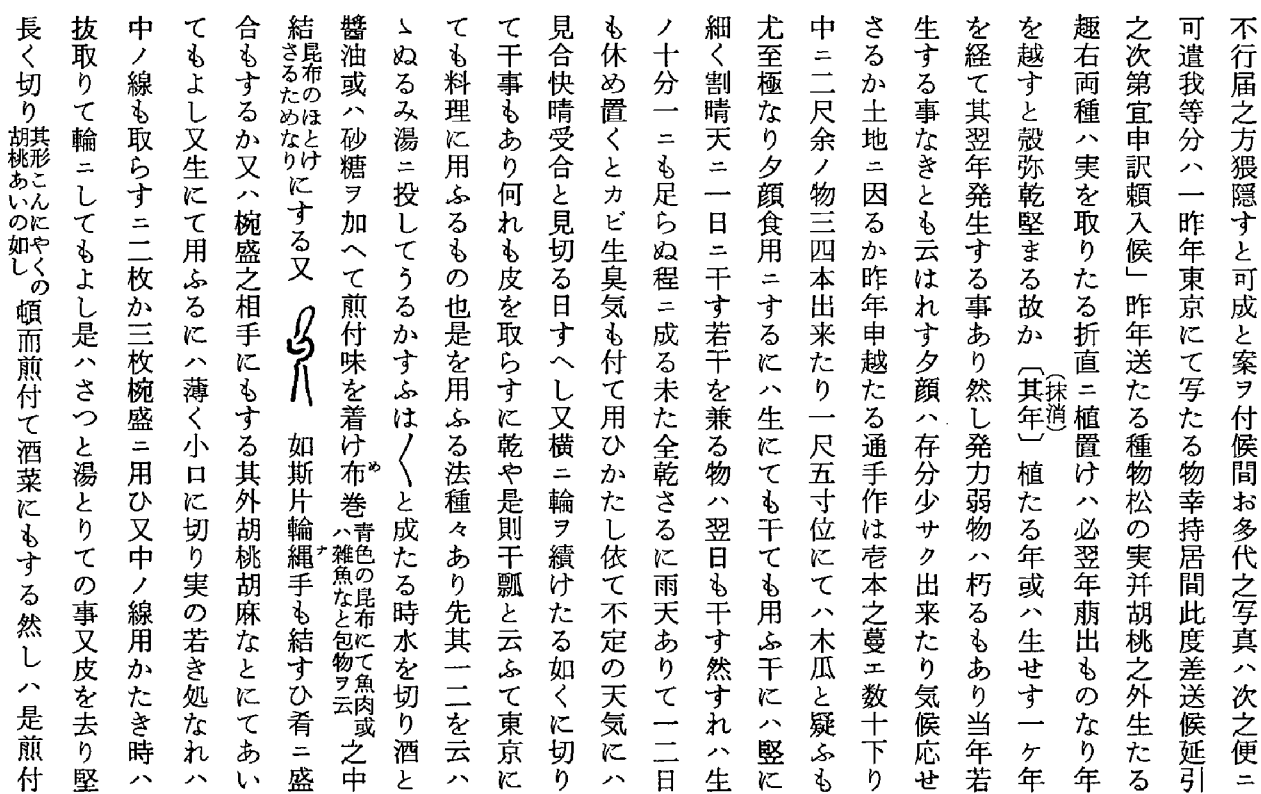 不行届之方猥隠すと可成と案ヲ付候間お多代之写真ハ次之便ニ
可遣我等分ハ一昨年東京にて写たる物幸持居間此度差送候延引
之次第宜申訳頼入候」昨年送たる種物松の実并胡桃之外生たる
趣右両種ハ実を取りたる折直ニ植置けハ必翌年萠出ものなり年
を越すと殻弥乾堅まる故か〔其年〕(抹消)植たる年或ハ生せす一ヶ年
を経て其翌年発生する事あり然し発力弱物ハ朽るもあり当年若
生する事なきとも云はれす夕顔ハ存分少サク出来たり気候応せ
さるか土地ニ因るか昨年申越たる通手作は壱本之蔓エ数十下り
中ニ二尺余ノ物三四本出来たり一尺五寸位にてハ木瓜と疑ふも
尤至極なり夕顔食用ニするにハ生にても干ても用ふ干にハ竪に
細く割晴天ニ一日ニ干す若干を兼る物ハ翌日も干す然すれハ生
ノ十分一ニも足らぬ程ニ成る未た全乾さるに雨天ありて一二日
も休め置くとカビ生臭気も付て用ひかたし依て不定の天気にハ
見合快晴受合と見切る日すへし又横ニ輪ヲ續けたる如くに切り
て干事もあり何れも皮を取らすに乾や是則干瓢と云ふて東京に
ても料理に用ふるもの也是を用ふる法種々あり先其一二を云ハ
ゝぬるみ湯ニ投してうるかすふは〱と成たる時水を切り酒と
醬油或ハ砂糖ヲ加へて煎付味を着け布巻め青色の昆布にて魚肉或ハ雑魚なと包物ヲ云之中
結昆布のほとけさるためなりにする又 如斯片輪縄ナ手も結すひ肴ニ盛
合もするか又ハ椀盛之相手にもする其外胡桃胡麻なとにてあい
てもよし又生にて用ふるにハ薄く小口に切り実の若き処なれハ
中ノ線も取らすニ二枚か三枚椀盛ニ用ひ又中ノ線用かたき時ハ
抜取りて輪ニしてもよし是ハさつと湯とりての事又皮を去り竪
長く切り其形こんにやくの胡桃あいの如し頓而煎付て酒菜にもする然しハ是煎付